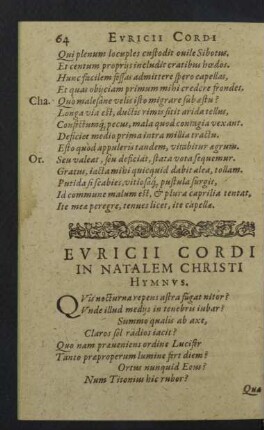 64 EVRICII CORDI
Qui plenum locuples custodit ouile Sibotus,
Et centum proprijs includit cratibus hœdos.
Hunc facilem fessas admittere spero capellas,
Et quas obijciam primum mihi credere frondes.
Cha. Quo malesane velis isto migrare sub æstu?
Longa via est, ductis rimis sitit arida tellus,
pecus, mala quod contagia vexant.
Deficiet medio prima intra millia tractu.
Esto quod appuleris tandem, vitabitur agrum.
Or. Seu valeat, seu deficiat, stata vota sequemur.
Gratus, iacta mihi quicquid dabit alea, tollam.
Putida si scabies, vitiosaq́, pustula surgit,
Id commune malum est, & plura caprilia tentat,
Ite meæ peregre, tenues licet, ite capellæ.
EVRICII CORDI
IN NATALEM CHRISTI
HYMNVS.
QVis nocturna repens astra fugat nitor?
Vnde illud medijs in tenebris iubar?
Summo qualis ab axe,
Claros sol radios iacit?
Quo nam præueniens ordine Lucifer
Tanto præproperum lumine fert diem?
Ortus nunquid Eous?
Num Titonius hic rubor?
Quæ